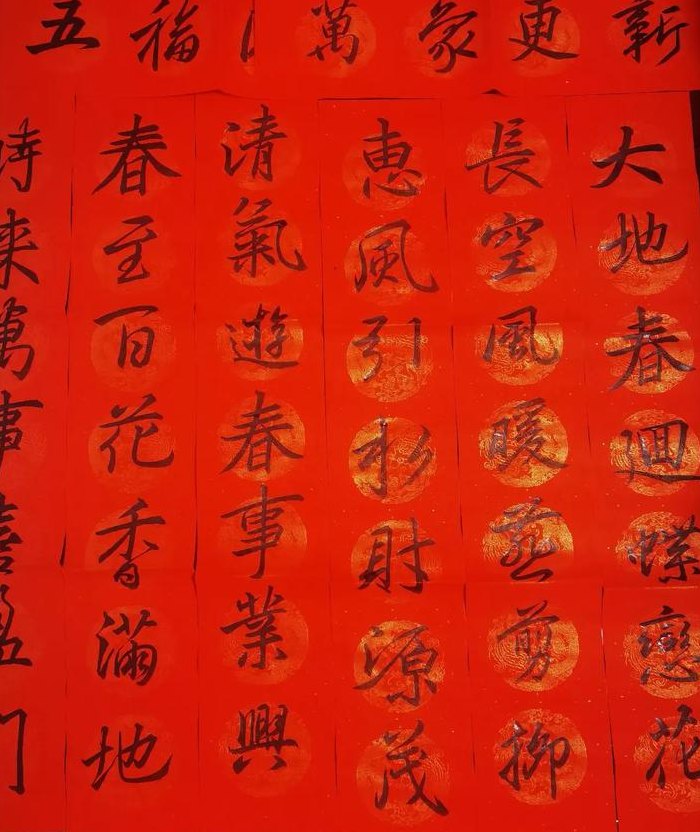 五福
萬象更新
大地春迴蝶戀花
長空風暖燕剪柳
恵風引杉財源茂
清氣遊春事業興
春至百花香滿地
時来萬事喜盈門